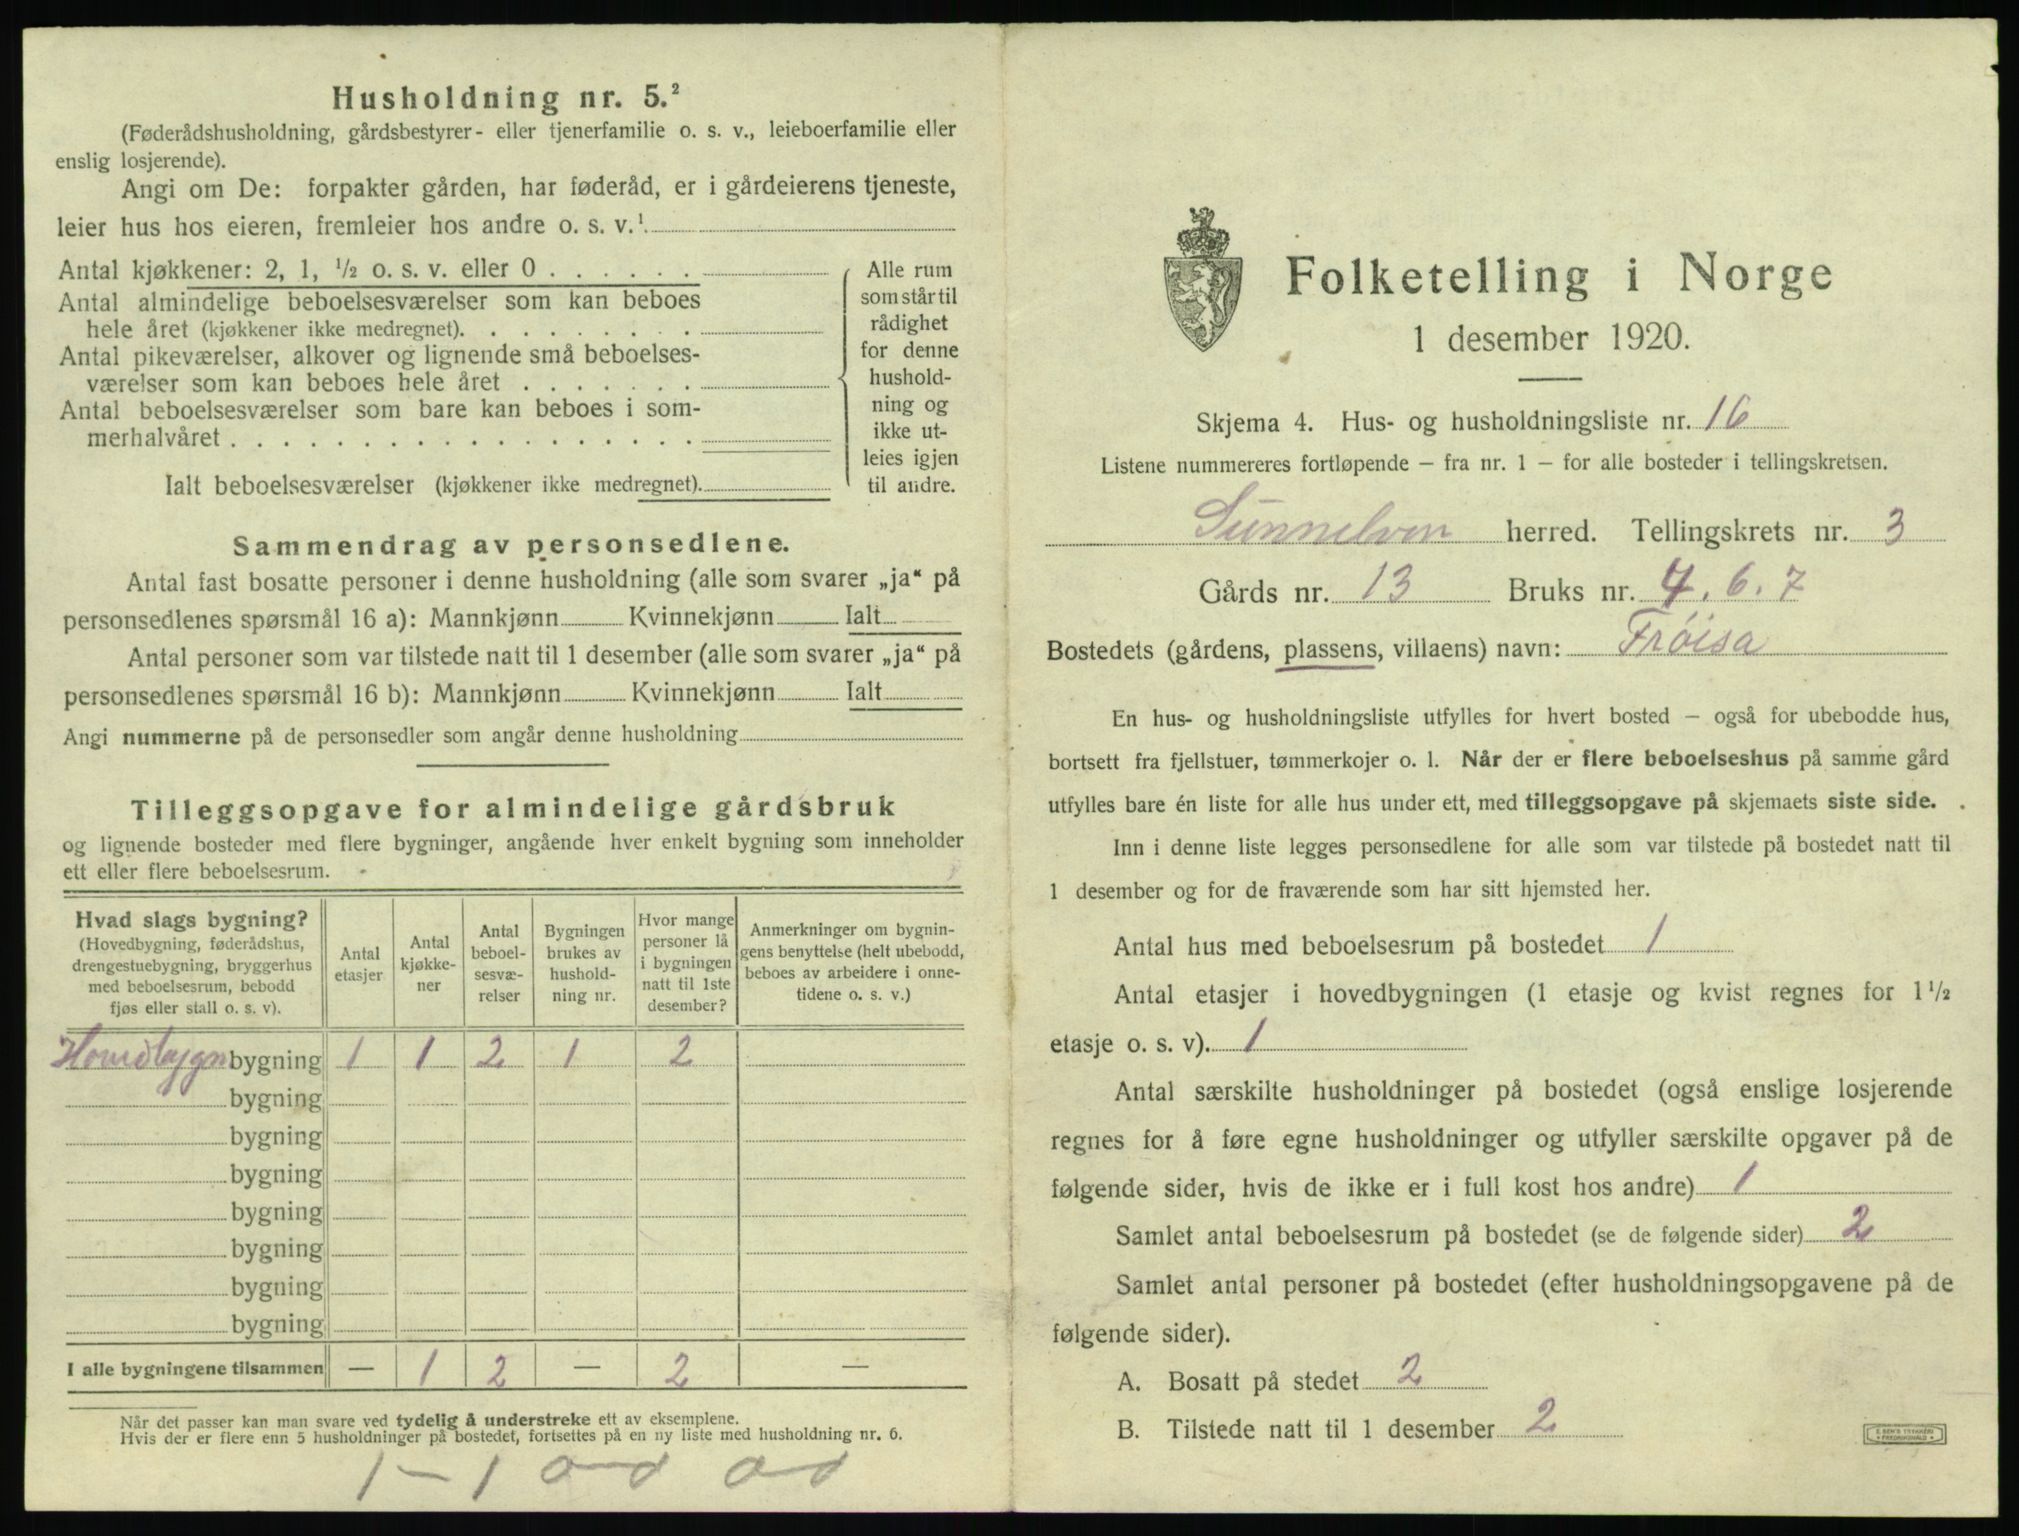 Husholdning nr. 5.²
(Føderådshusholdning, gårdsbestyrer- eller tjenerfamilie o. s. v., leieboerfamilie eller
enslig losjerende).
Angi om De: forpakter gården, har føderåd, er i gårdeierens tjeneste,
leier hus hos eieren, fremleier hos andre o. s. v.¹
Antal kjøkkener: 2, 1, ½ o. s. v. eller 0 . . . . . .
Antal almindelige beboelsesværelser som kan beboes
hele året (kjøkkener ikke medregnet). . . . . . . . .
Antal pikeværelser, alkover og lignende små beboelses-
værelser som kan beboes hele året . . . . . . .
Antal beboelsesværelser som bare kan beboes i som-
merhalvåret . . . . . . . . . . . . . . . . . .
Ialt beboelsesværelser (kjøkkener ikke medregnet).
Alle rum
som står til
rådighet
for denne
hushold-
ning og
ikke ut-
leies igjen
til andre.
Sammendrag av personsedlene.
Antal fast bosatte personer i denne husholdning (alle som svarer „ja“ på
personsedlenes spørsmål 16 a): Mannkjønn Kvinnekjønn Ialt
Antal personer som var tilstede natt til 1 desember (alle som svarer „ja“ på
personsedlenes spørsmål 16 b): Mannkjønn Kvinnekjønn Ialt
Angi nummerne på de personsedler som angår denne husholdning
Tilleggsopgave for almindelige gårdsbruk
og lignende bosteder med flere bygninger, angående hver enkelt bygning som inneholder
ett eller flere beboelsesrum.
Hvad slags bygning?
(Hovedbygning, føderådshus,
drengestuebygning, bryggerhus
med beboelsesrum, bebodd
fjøs eller stall o. s. v).
Antal
etasjer
Antal
kjøkke-
ner
Antal
beboel-
sesvæ-
relser
Bygningen
brukes av
hushold-
ning nr.
Hvor mange
personer lå
i bygningen
natt til 1ste
desember?
Anmerkninger om bygnin-
gens benyttelse (helt ubebodd,
beboes av arbeidere i onne-
tidene o. s. v.)
Hovedbygn bygning 1 1 2 1 2
bygning
bygning
bygning
bygning
bygning
bygning
bygning
I alle bygningene tilsammen — 1 2 — 2 —
Når det passer kan man svare ved tydelig å understreke ett av eksemplene.
Hvis der er flere enn 5 husholdninger på bostedet, fortsettes på en ny liste med husholdning nr. 6.
1 - 1
Folketelling i Norge
1 desember 1920.
Skjema 4. Hus- og husholdningsliste nr. 16
Listene nummereres fortløpende – fra nr. 1 – for alle bosteder i tellingskretsen.
Sunnelven herred. Tellingskrets nr. 3
Gårds nr. 13 Bruks nr. 4. 6. 7
Bostedets (gårdens, plassens, villaens) navn: Frøisa
En hus- og husholdningsliste utfylles for hvert bosted – også for ubebodde hus,
bortsett fra fjellstuer, tømmerkojer o. l. Når der er flere beboelseshus på samme gård
utfylles bare én liste for alle hus under ett, med tilleggsopgave på skjemaets siste side.
Inn i denne liste legges personsedlene for alle som var tilstede på bostedet natt til
1 desember og for de fraværende som har sitt hjemsted her.
Antal hus med beboelsesrum på bostedet 1
Antal etasjer i hovedbygningen (1 etasje og kvist regnes for 1½
etasje o. s. v). 1
Antal særskilte husholdninger på bostedet (også enslige losjerende
regnes for å føre egne husholdninger og utfyller særskilte opgaver på de
følgende sider, hvis de ikke er i full kost hos andre) 1
Samlet antal beboelsesrum på bostedet (se de følgende sider) 2
Samlet antal personer på bostedet (efter husholdningsopgavene på de
følgende sider).
A. Bosatt på stedet 2
B. Tilstede natt til 1 desember 2